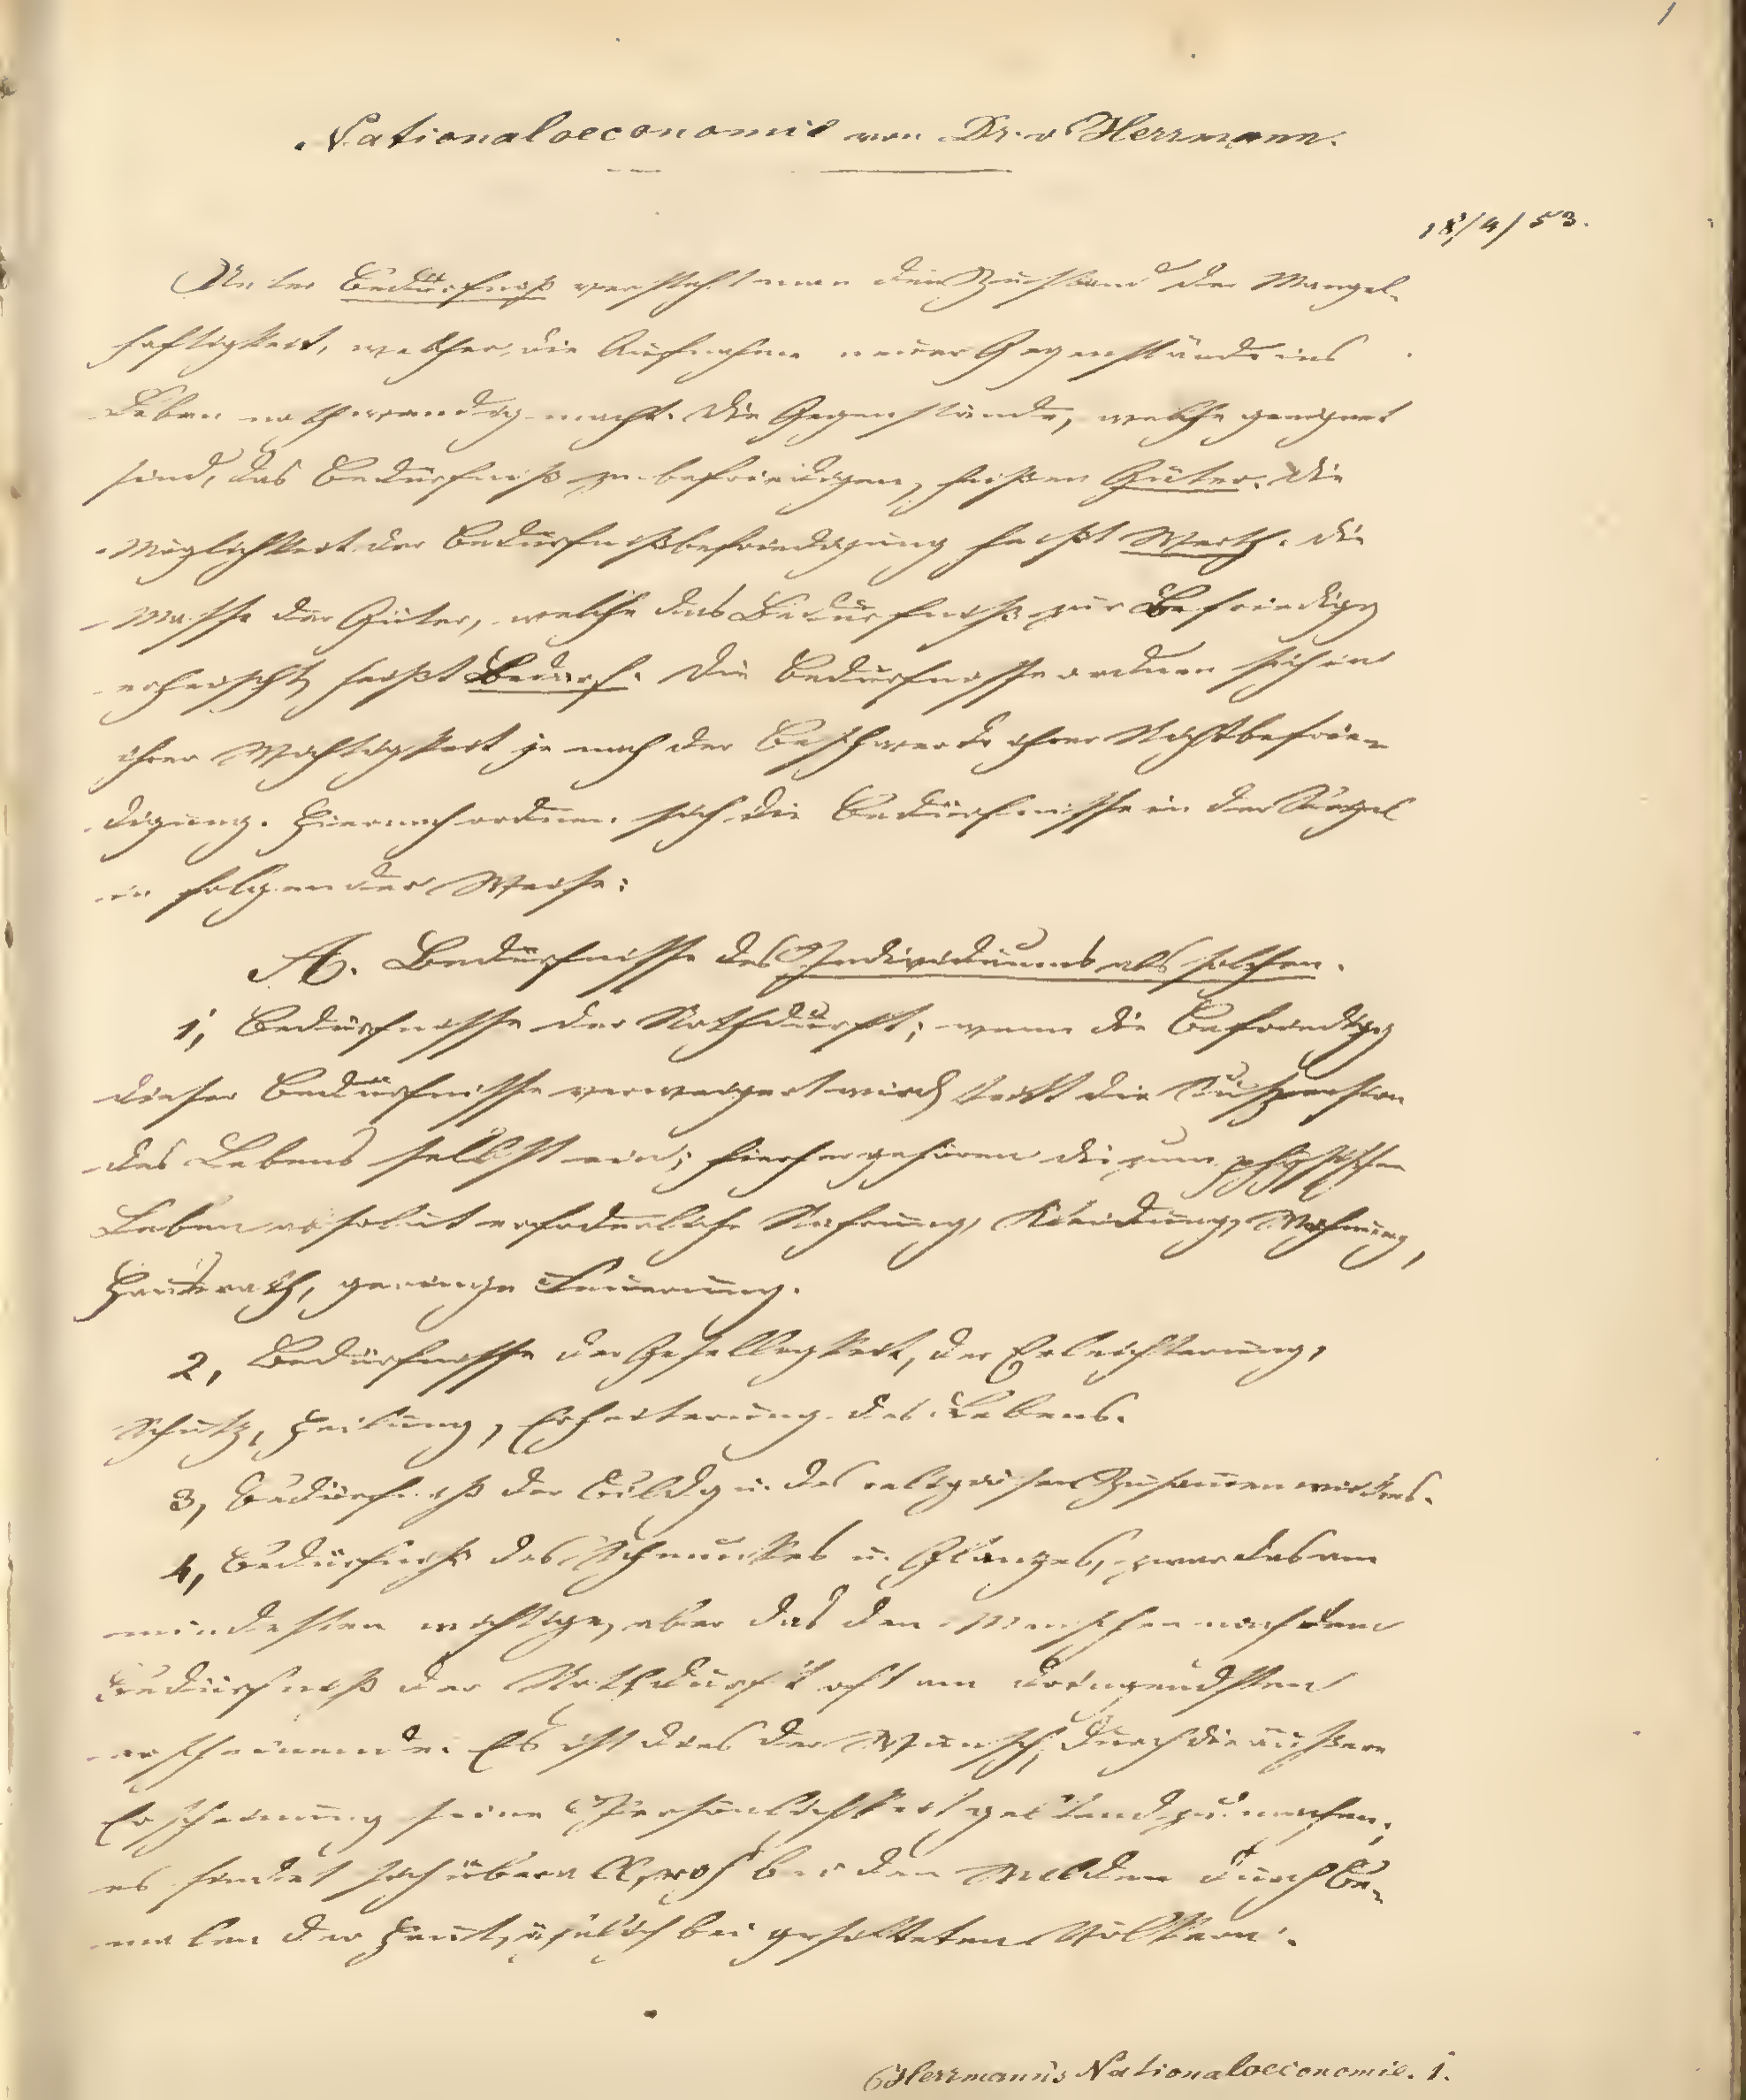 1
Nationaloeconomie von Dr. v Herrmann.
18/4/53.
Unter Bedürfniß versteht man den Zustand der Mangel-
haftigkeit, welcher die Aufnahme neuer Gegenstände ins
Leben nothwendig macht. Die Gegenstände, welche geeignet
sind, das Bedürfniß zu befriedigen, heißen Güter. Die
Möglichkeit der Bedürfnißbefriedigung heißt Werth. Die
Masse der Güter, welche das Bedürfniß zur Befriedigg
erheischt, heißt Bedarf. Die Bedürfnisse ordnen sich in
ihrer Wichtigkeit je nach der Beschwerde ihrer Nichtbefrie-
digung. Hiernach ordnen sich die Bedürfnisse in der Regel
in folgender Weise:
A. Bedürfnisse des Individuums als solchen.
1, Bedürfnisse der Nothdurft; wenn die Befriedigg
dieser Bedürfnisse verweigert wird, tritt die Suspension
des Lebens selbst ein; hierher gehören die zum physischen
Leben absolut erforderliche Nahrung, Kleidung, Wohnung,
Hausrath, geringe Feuerung.
2, Bedürfnisse der Geselligkeit, der Erleichterung,
Schutz, Heilung, Erheiterung des Lebens.
3, Bedürfniß der Bildg u. des religiösen Zusammenwirkens.
4, Bedürfniß des Schmuckes u. Glanzes, zwar das am
mindesten wichtige, aber das den Menschen nach dem
Bedürfniß der Nothdurft oft am dringendsten
erscheinende. Es ist dies der Wunsch, durch die äußere
Erscheinung seine Persönlichkeit geltend zu machen;
es findet sich überall, roh bei den Wilden durch Be-
malen der Haut, ähnlich bei gesitteten Völkern.
Herrmann's Nationaloeconomie. 1.